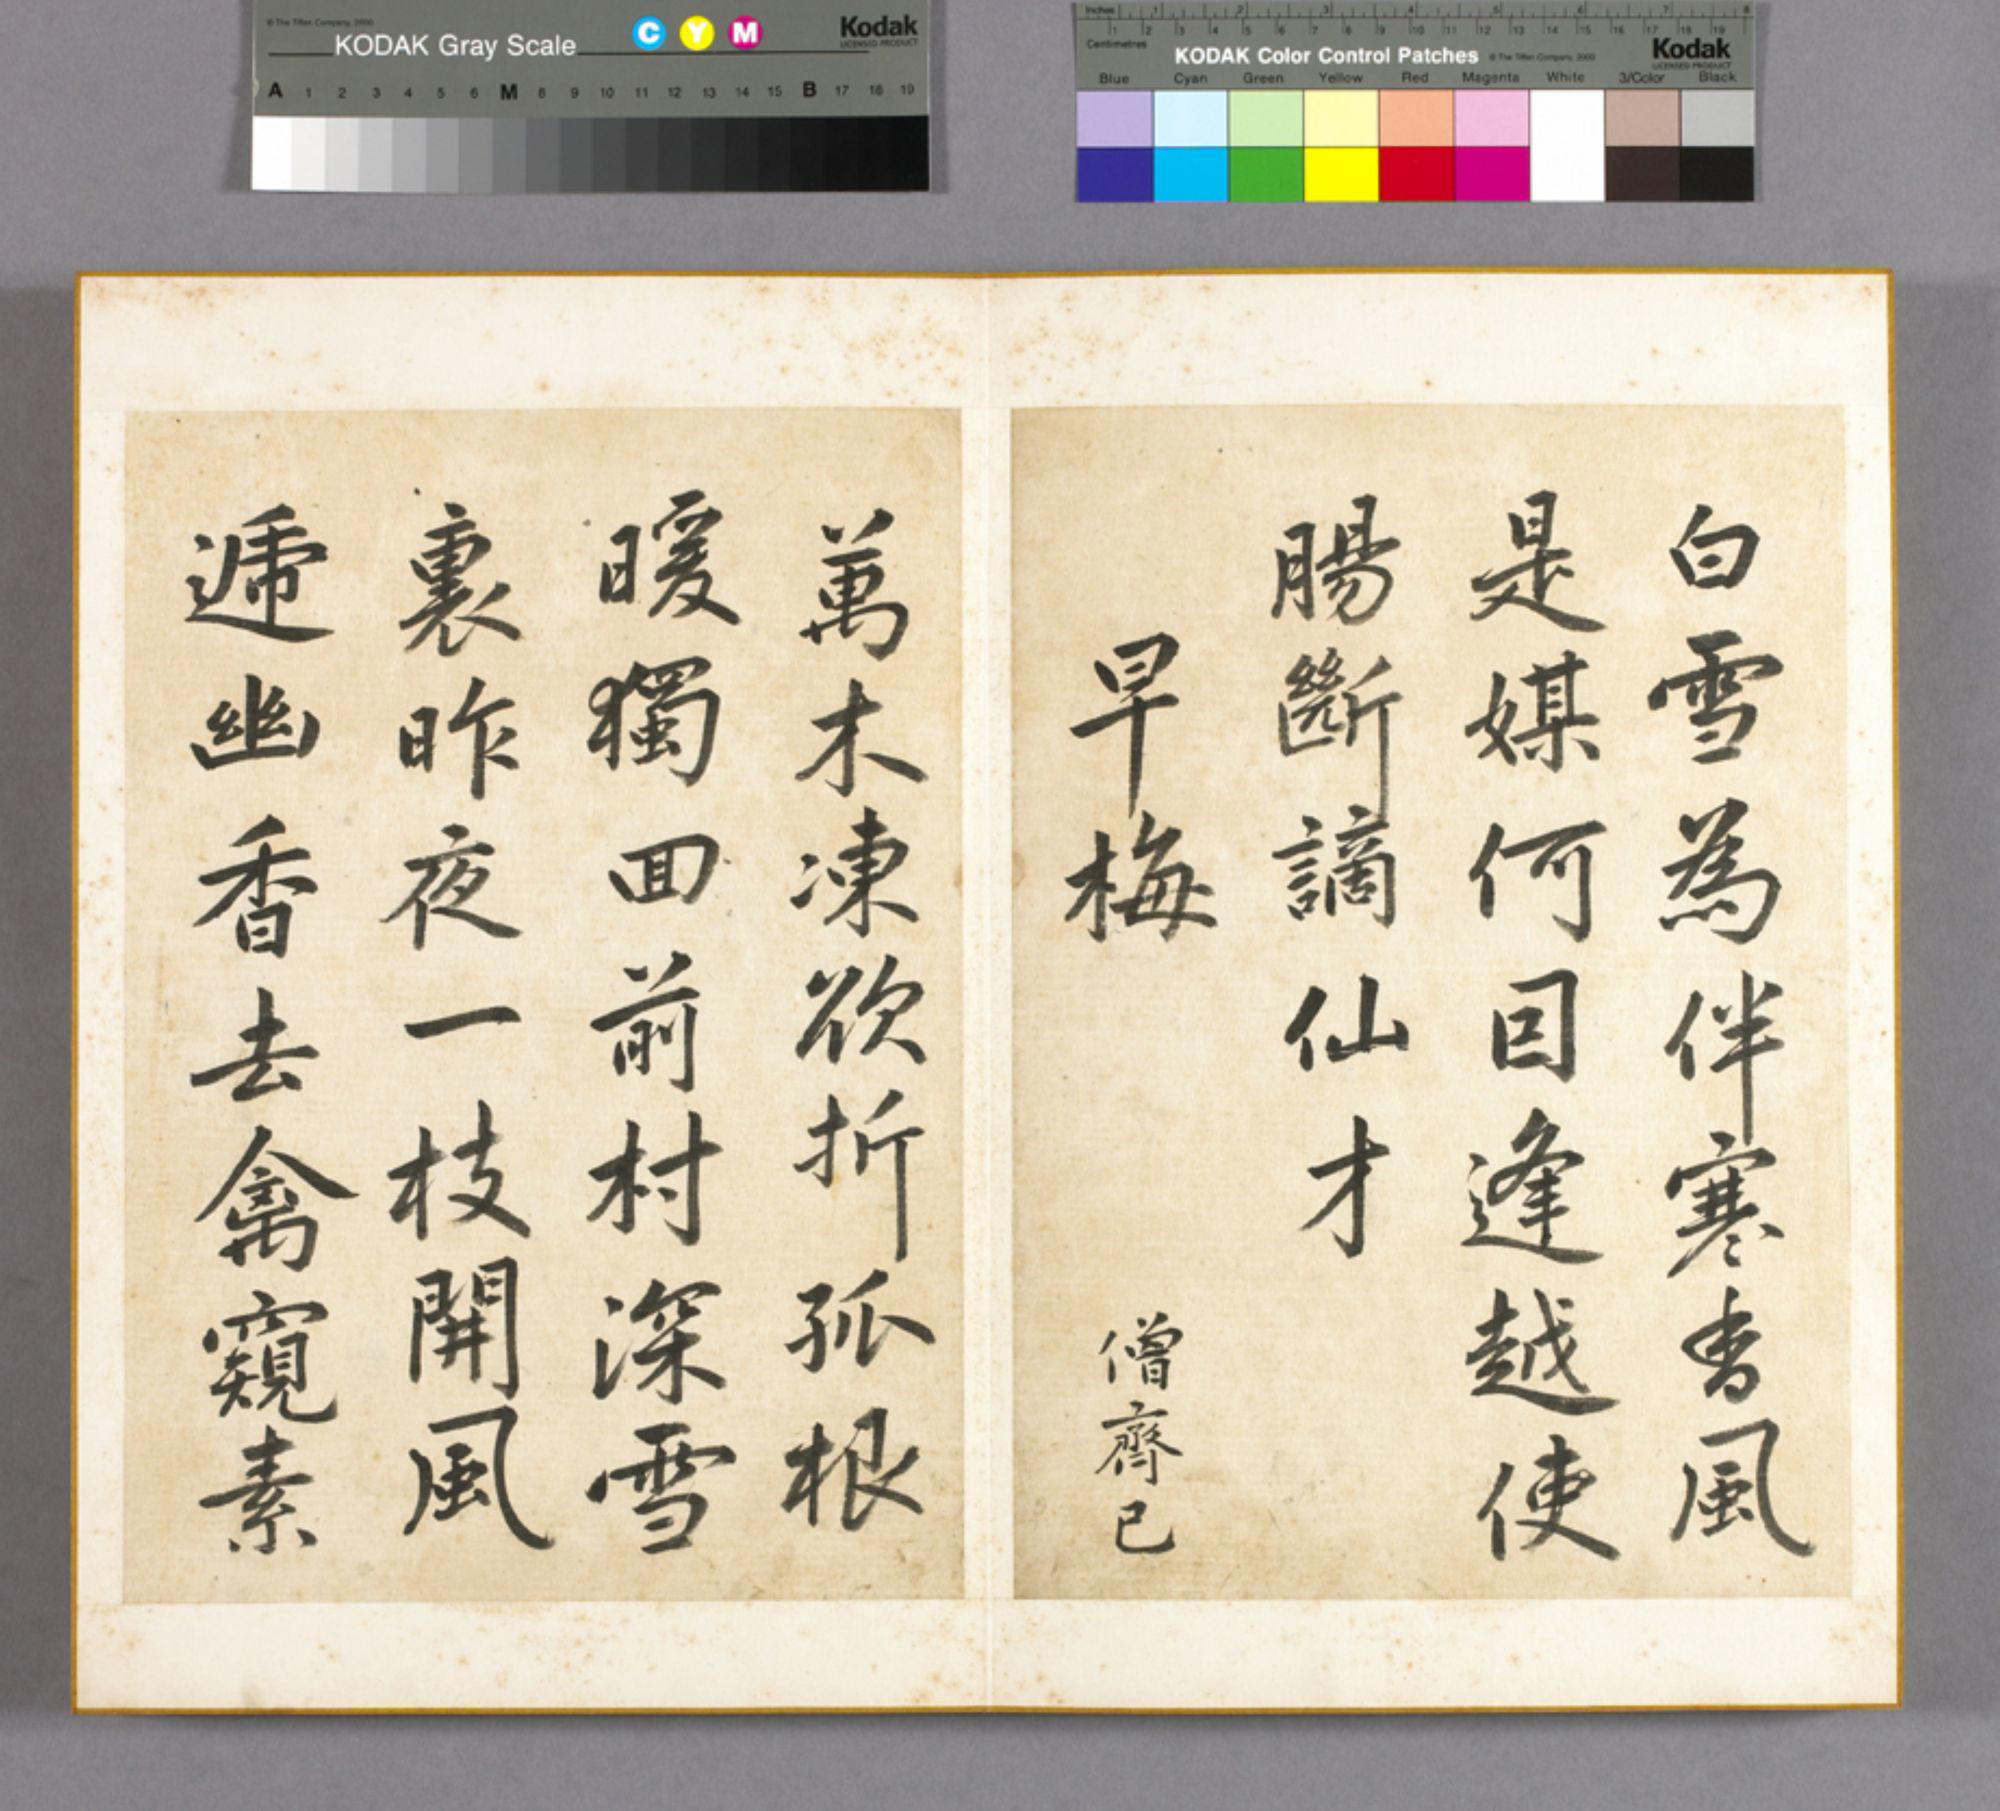 © The Tiffen Company, 2000
KODAK Gray Scale
C Y M
Kodak
LICENSED PRODUCT
A 1 2 3 4 5 6 M 8 9 10 11 12 13 14 15 B 17 18 19
Inches 1 2 3 4 5 6 7 8
Centimetres 1 2 3 4 5 6 7 8 9 10 11 12 13 14 15 16 17 18 19
KODAK Color Control Patches © The Tiffen Company, 2000
Kodak
LICENSED PRODUCT
Blue Cyan Green Yellow Red Magenta White 3/Color Black
白雪為伴寒香風
是媒何因逢越使
腸斷謫仙才
早梅 僧齊已
萬木凍欲折孤根
暖獨回前村深雪
裏昨夜一枝開風
遞幽香去禽窺素